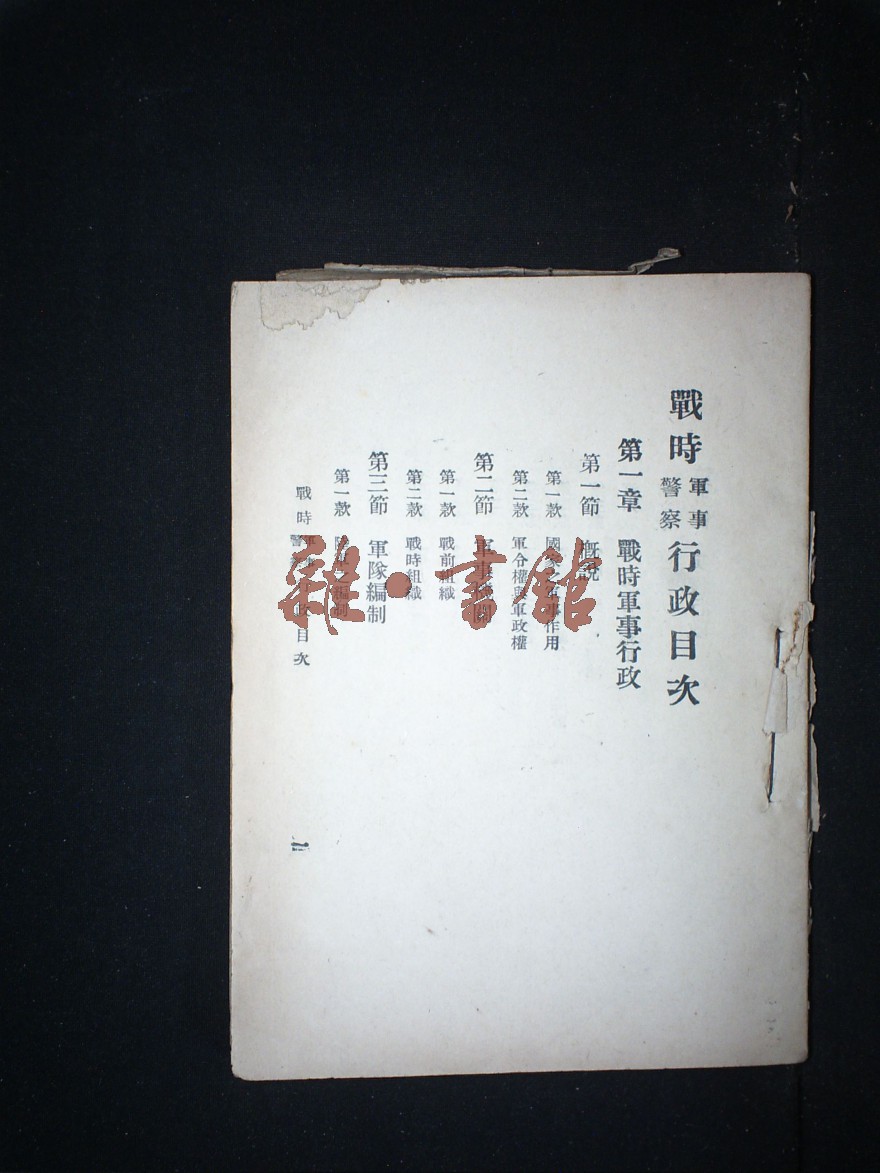 戰時軍事警察行政目次
第一章 戰時軍事行政
第一節 概說
第一款 國家軍事作用
第二款 軍令權與軍政權
第二節 軍事機關
第一款 戰前組織
第二款 戰時組織
第三節 軍隊編制
第一款 編制
戰時軍事警察行政目次
一
雜·書館